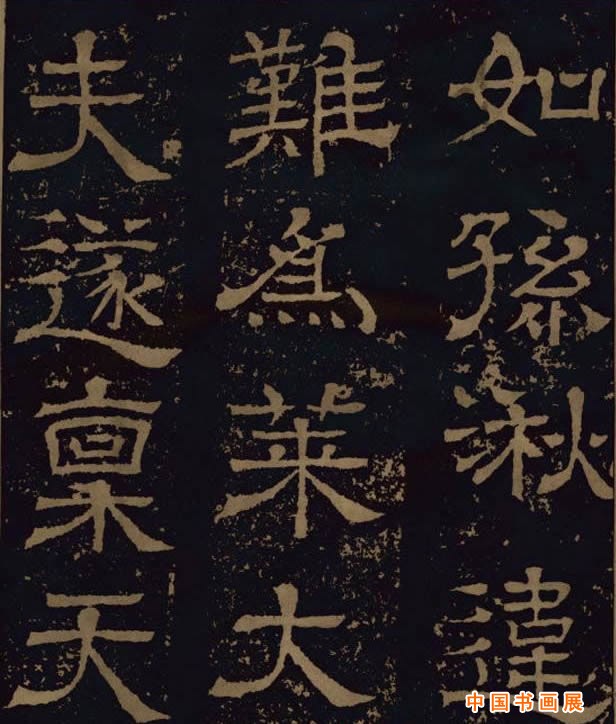 如孫湫違
難爲萊大
夫遂稟天
中国书画展